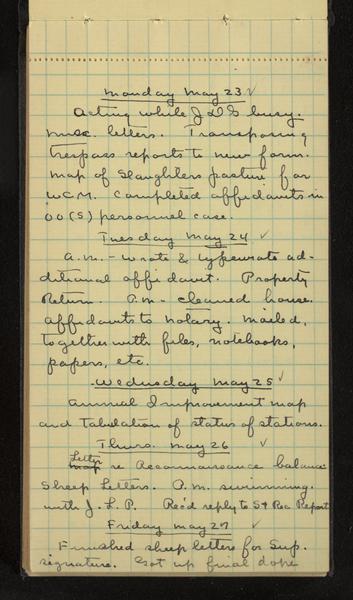 Monday May 23 ✓
Acting while J D G busy.
misc. letters. Transposing
trespass reports to new form.
map of Slaughters pasture for
W C M. Completed affidavits in
OO (S) personnel case.
Tuesday May 24 ✓
A.M. - wrote & typewrote ad-
ditional affidavit. Property
Return. P.M. - cleaned house.
Affidavits to notary. Mailed,
together with files, notebooks,
papers, etc.
Wednesday May 25 ✓
Annual Improvement map
and tabulation of status of stations.
Thurs. May 26 ✓
Letter
map re Reconnaissance balance
Sheep Letters. P.M. swimming
with J. L. P. Rec'd reply to St Rec Report
Friday May 27 ✓
Finished sheep letters for Sup.
signature. Got up final dope